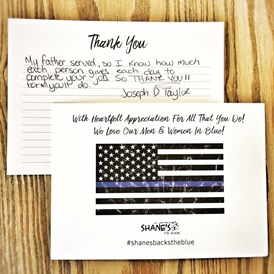 Thank You
My father served, so I know how much
each person gives each day to
complete your job. So THANK YOU!!
for all you do.
Joseph D Taylor
With Heartfelt Appreciation For All That You Do!
We Love Our Men & Women In Blue!
SHANE'S
#shanesbackstheblue